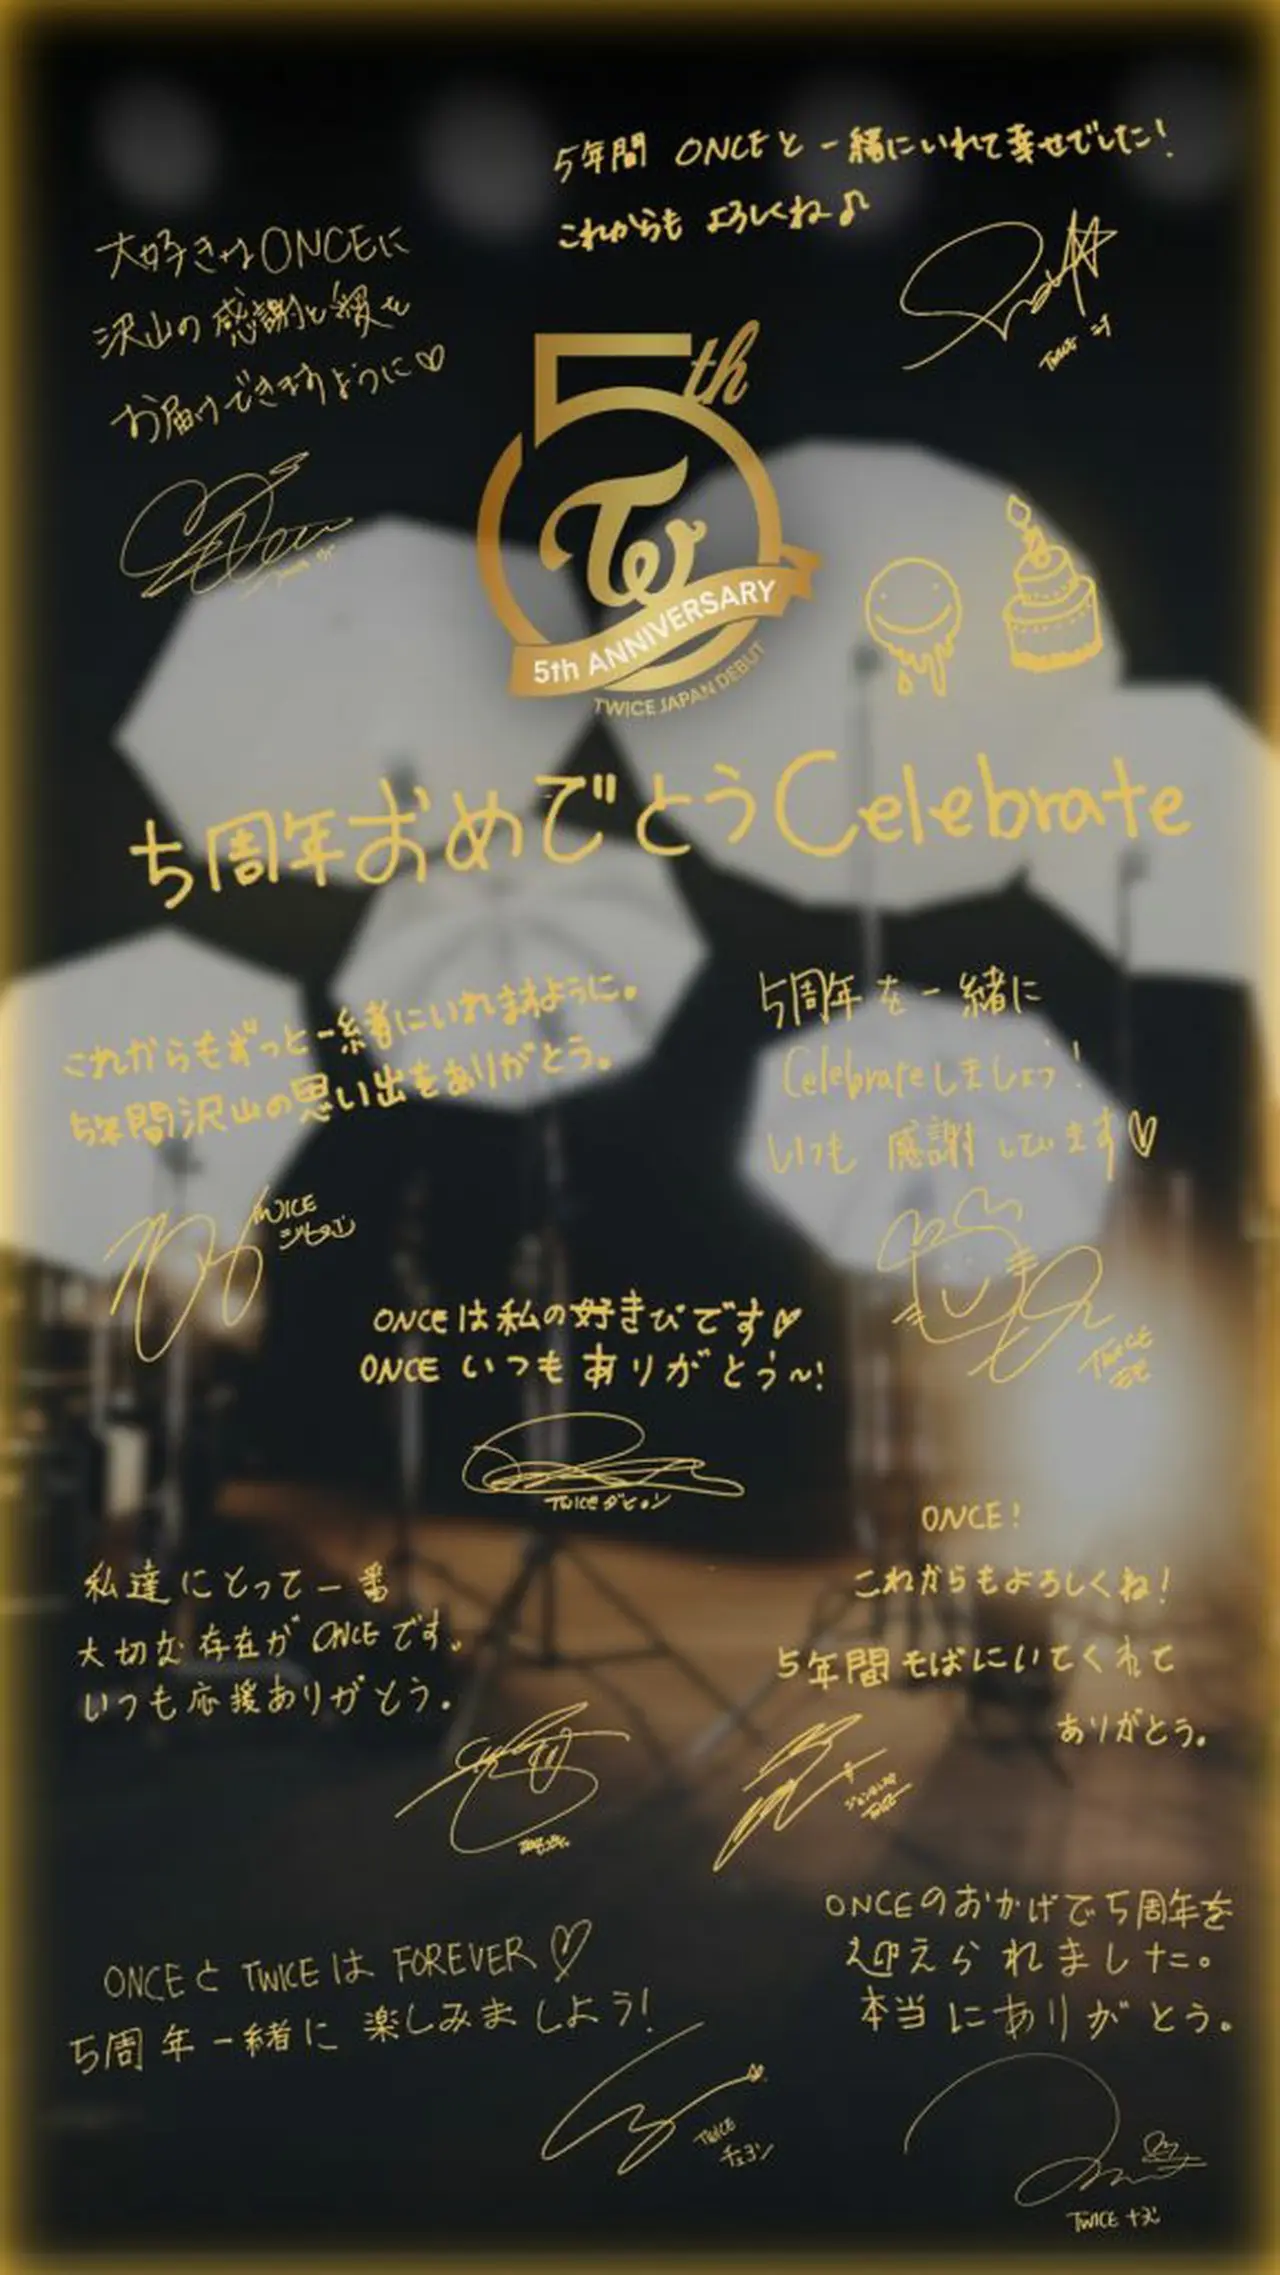 5年間 ONCEと一緒にいれて幸せでした!
これからも よろしくね♪
TWICE ミナ
大好きなONCEに
沢山の感謝と愛を
お届けできますように♡
5th
TW
5th ANNIVERSARY
TWICE JAPAN DEBUT
5周年おめでとうCelebrate
これからもずっと一緒にいれますように。
5年間沢山の思い出をありがとう。
TWICE
ジヒョ
5周年を一緒に
Celebrateしましょう!
いつも 感謝しています♡
TWICE
モモ
ONCEは私の好きぴです♡
ONCE いつもありがとう〜!
TWICE ダヒョン
私達にとって一番
大切な存在がONCEです。
いつも応援ありがとう。
ONCE!
これからもよろしくね!
5年間そばにいてくれて
ありがとう。
ジョンヨン
TWICE
ONCEとTWICEはFOREVER♡
5周年一緒に楽しみましょう!
TWICE
チェヨン
ONCEのおかげで5周年を
迎えられました。
本当にありがとう。
TWICE ナヨン